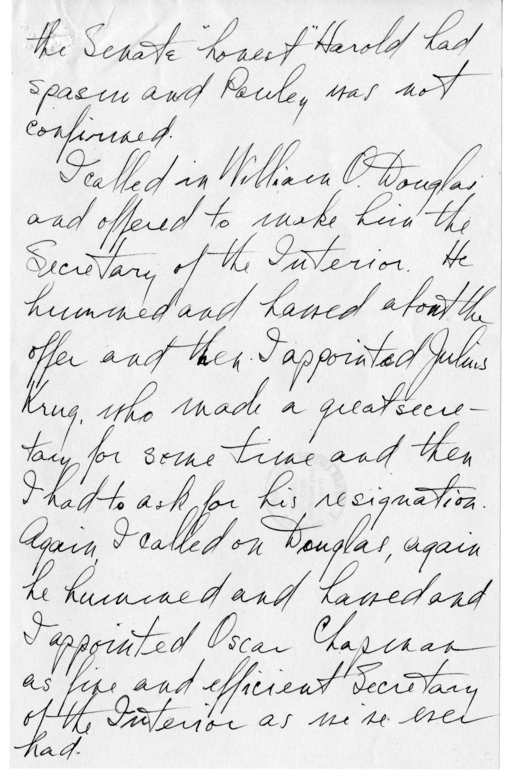 the Senate "honest" Harold had
spasm and Pauley was not
confirmed.
I called in William O. Douglas
and offered to make him the
Secretary of the Interior. He
hummed and hawed about the
offer and then I appointed Julius
Krug, who made a great secre-
tary for some time and then
I had to ask for his resignation.
Again, I called on Douglas, again
he hummed and hawed and
I appointed Oscar Chapman
as fine and efficient Secretary
of the Interior as we've ever
had.